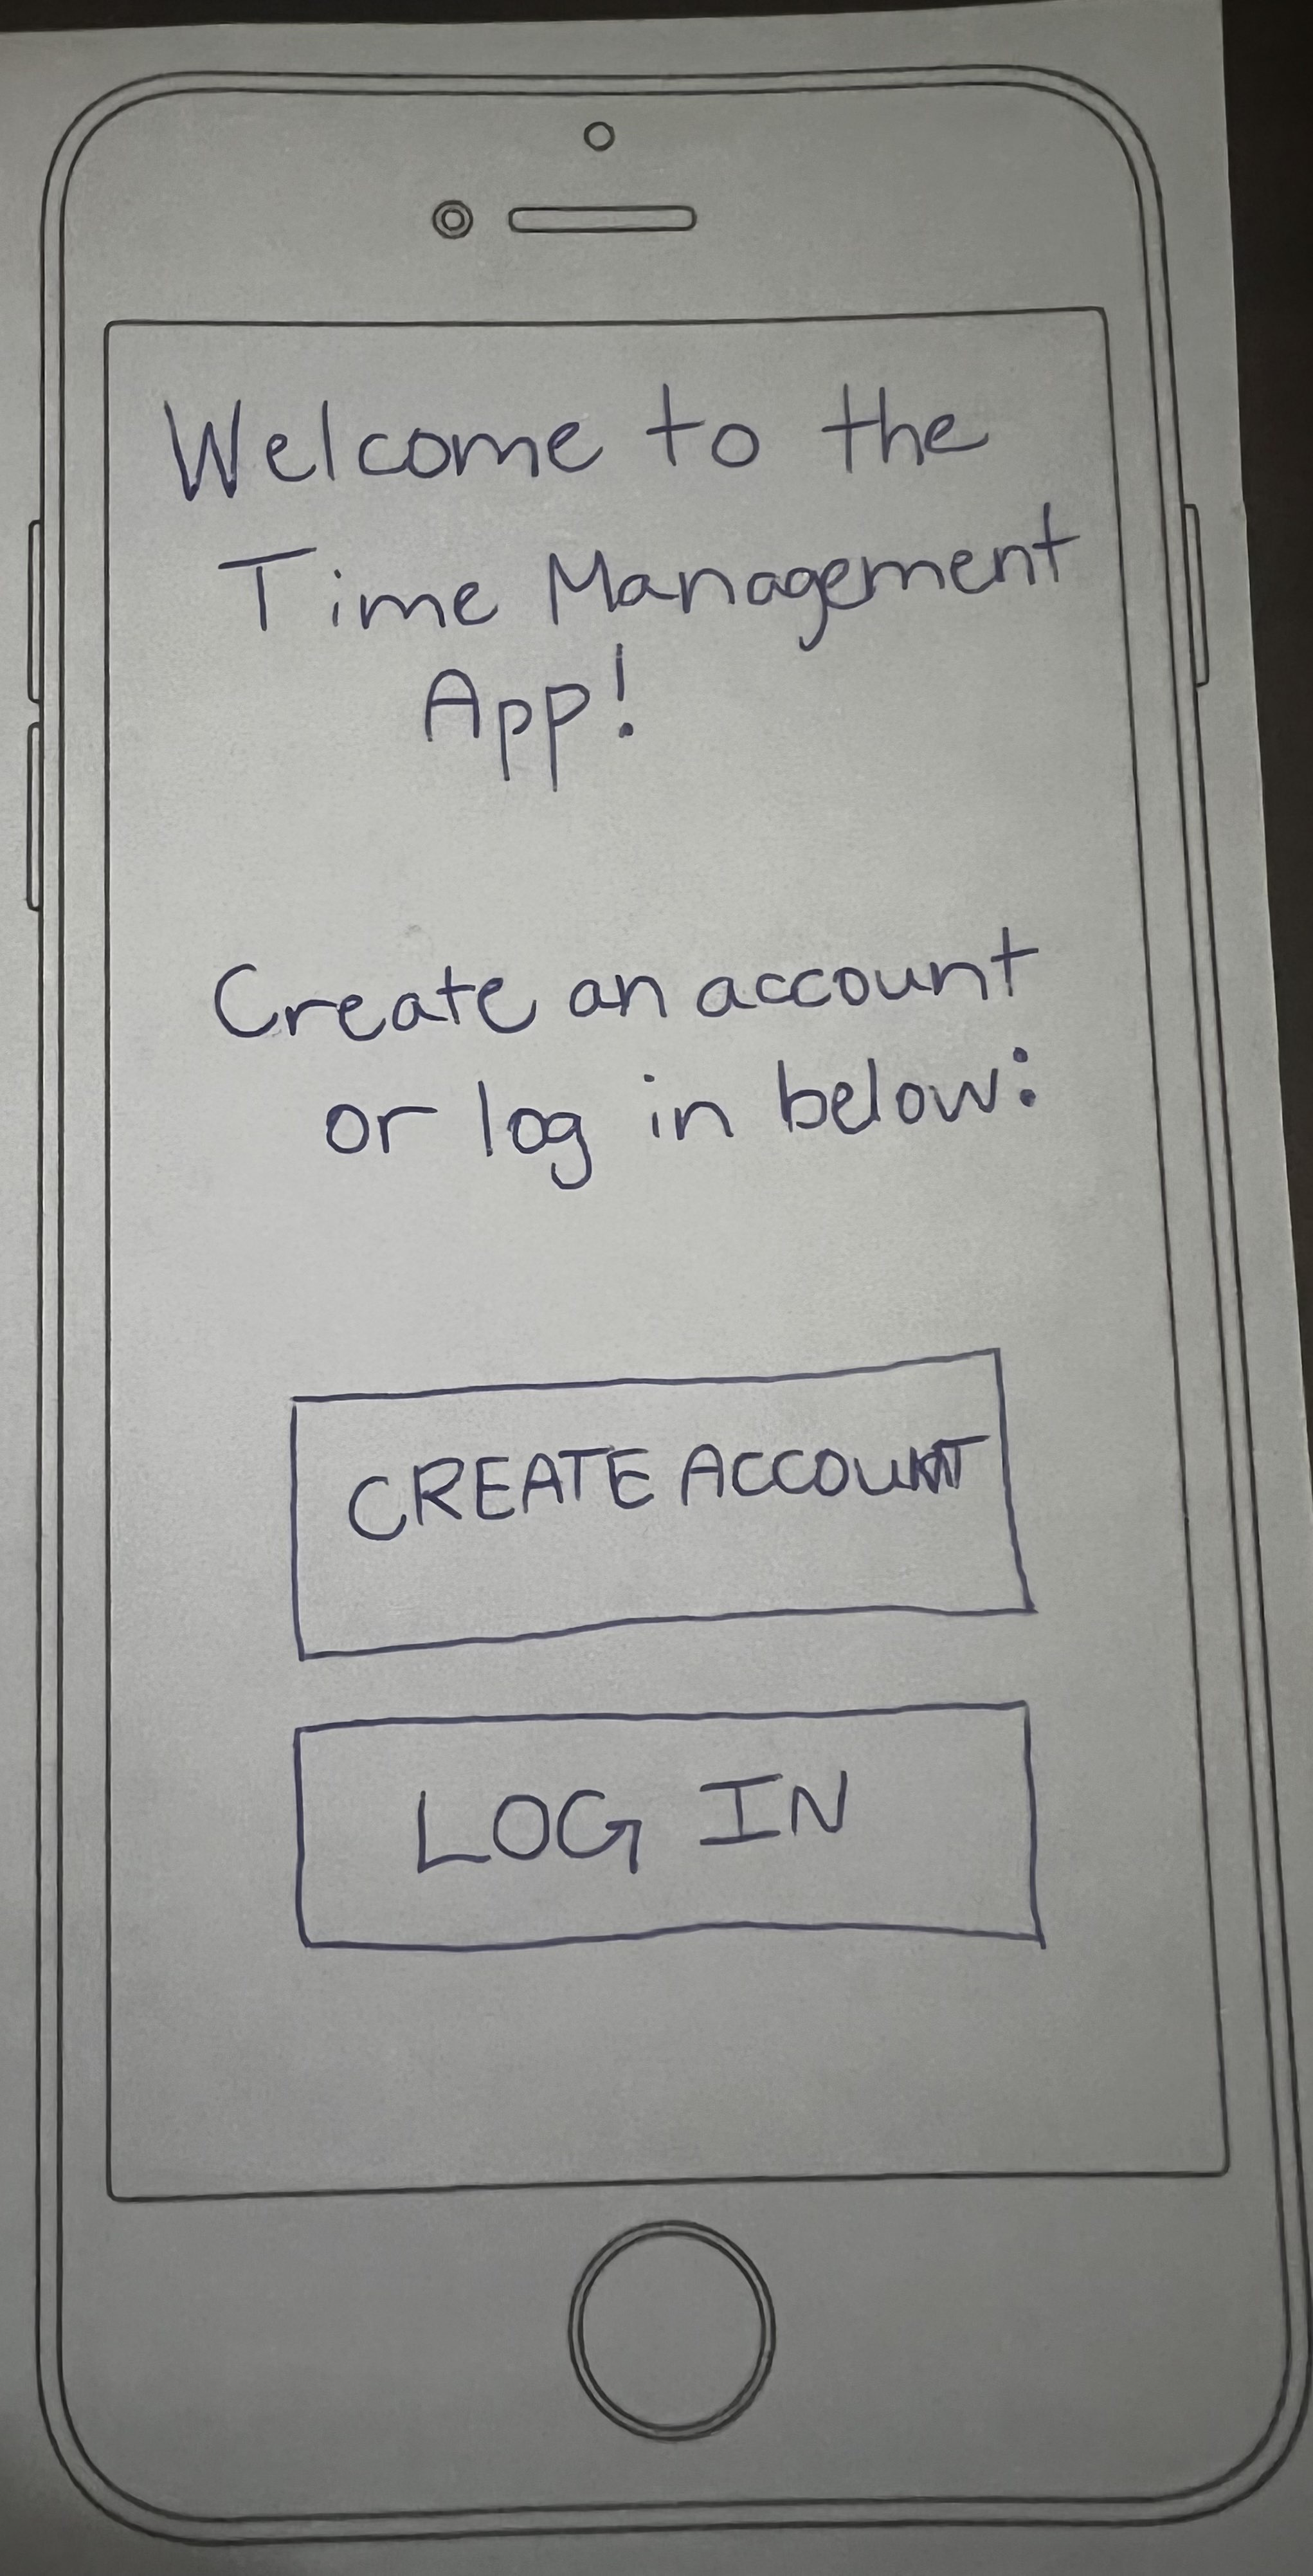 Welcome to the
Time Management
App!
Create an account
or log in below:
CREATE ACCOUNT
LOG IN